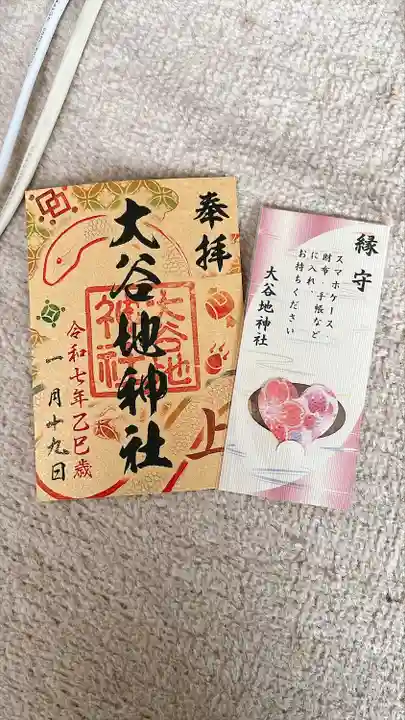 奉拝
大谷地神社
大谷地
神社
上
令和七年乙巳歳
一月廿九日
縁守
スマホケース、
財布・手帳など
に入れ、
お持ちください
大谷地神社